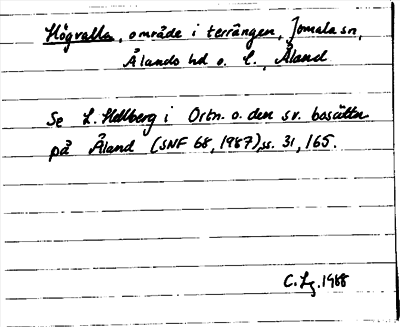 Högvalla, område i terrängen, Jomala sn,
Ålands hd o. l., Åland
Se L. Hellberg i Ortn. o. den sv. bosättn
på Åland (SNF 68, 1987), ss. 31, 165.
C. Lg. 1988